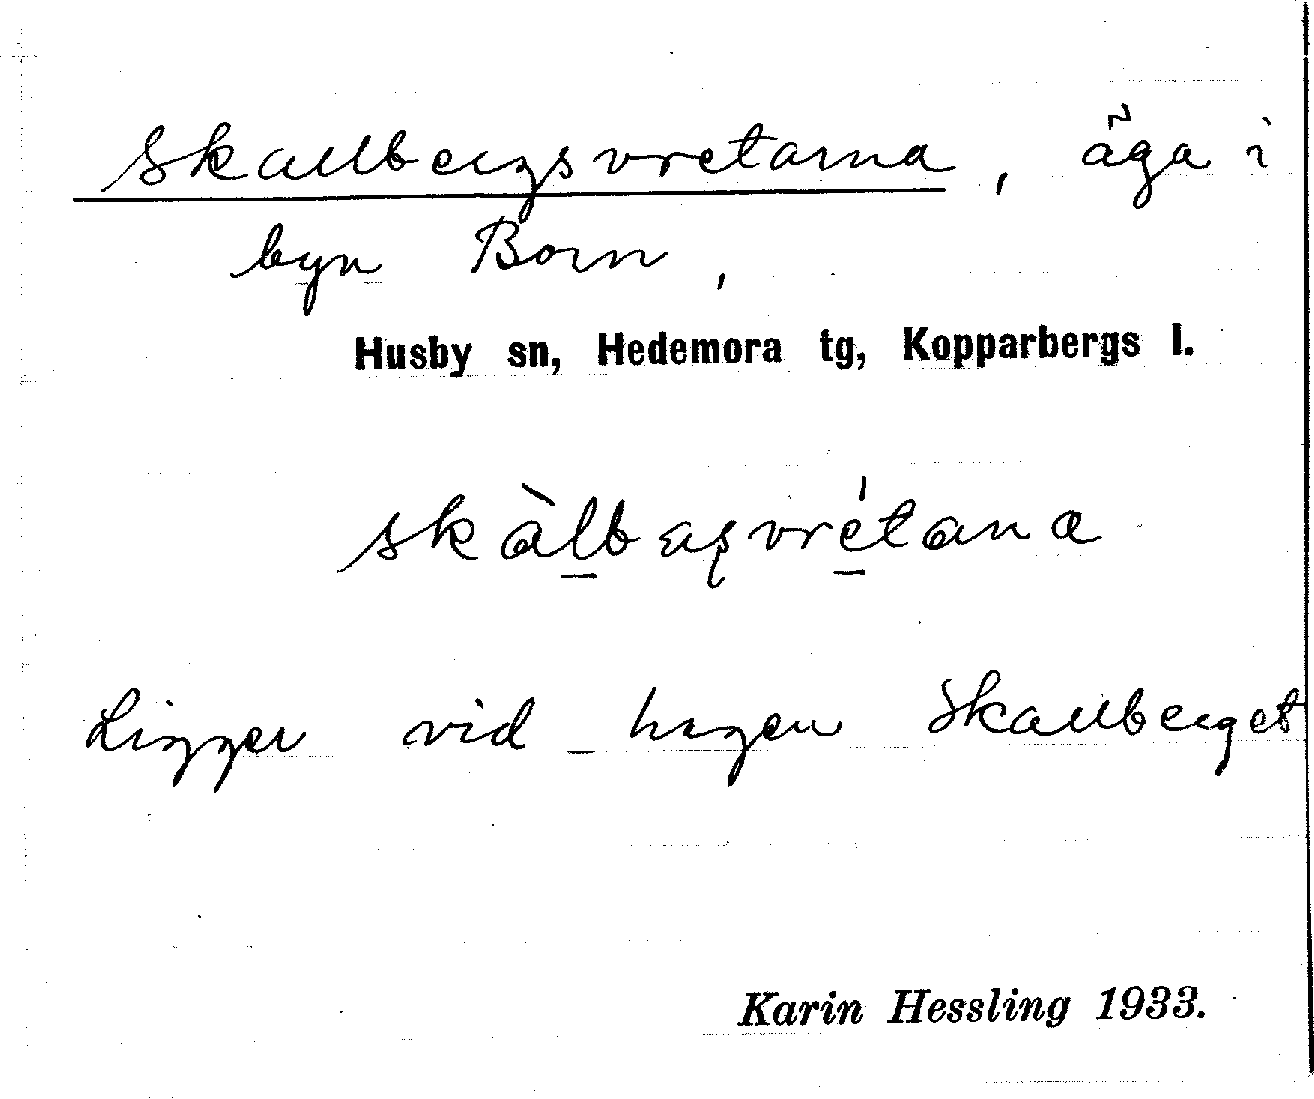 Skallbergsvretarna, äga i
byn Born,
Husby sn, Hedemora tg, Kopparbergs l.
skàlbasvrétana
Ligger vid hagen Skallberget
Karin Hessling 1933.